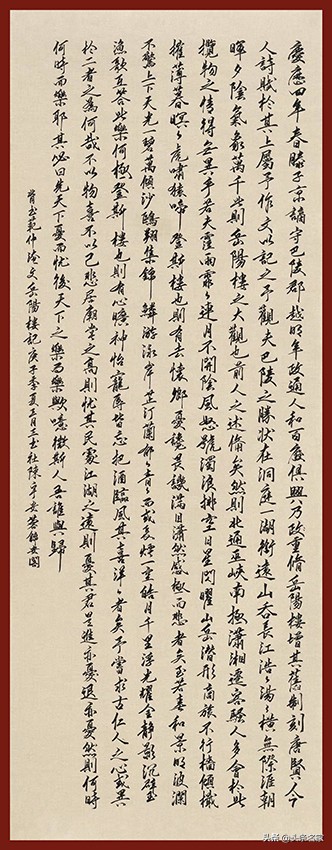 慶歷四年春滕子京謫守巴陵郡越明年政通人和百廢俱興乃重脩岳陽樓增其舊制刻唐賢今
人詩賦於其上屬予作文以記之予觀夫巴陵之勝狀在洞庭一湖銜遠山吞長江浩浩湯湯橫無際涯朝
暉夕陰氣象萬千此則岳陽樓之大觀也前人之述備矣然則北通巫峽南極瀟湘遷客騷人多會於此
攬物之情得無異乎若夫霪雨霏霏連月不開陰風怒號濁浪排空日星隱曜山岳潛形商旅不行檣傾楫
摧薄暮冥冥虎嘯猿啼登斯樓也則有去懷鄉憂讒畏譏滿目蕭然感極而悲者矣至若春和景明波瀾
不驚上下天光一碧萬頃沙鷗翔集錦鱗游泳岸芷汀蘭郁郁青青而或長煙一空皓月千里浮光耀金靜影沉璧
漁歌互答此樂何極登斯樓也則有心曠神怡寵辱皆忘把酒臨風其喜洋洋者矣予嘗求古仁人之心或異
於二者之為何哉不以物喜不以己悲居廟堂之高則憂其民處江湖之遠則憂其君是進亦憂退亦憂然則何時
何時而樂耶其必曰先天下憂而憂後天下之樂而樂歟噫微斯人吾誰與歸
書范仲淹文岳陽樓記庚子季夏